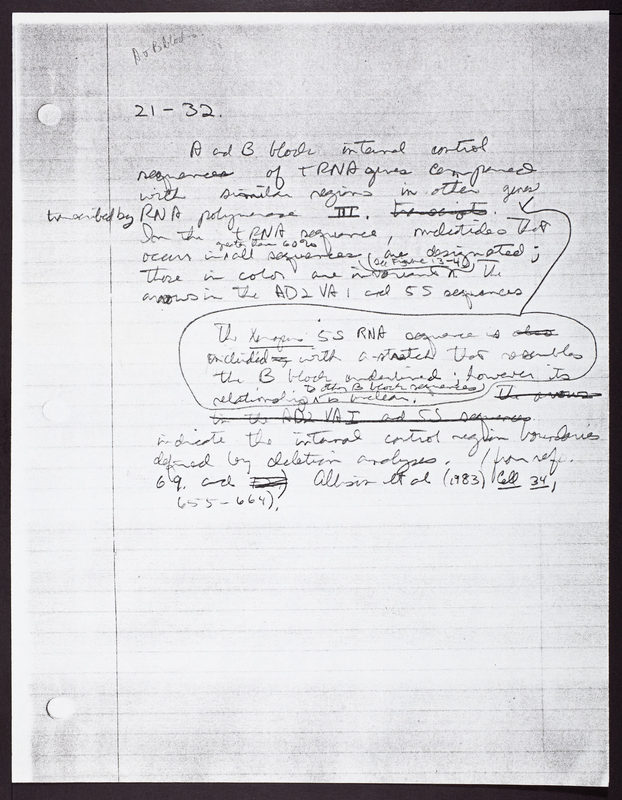 A & B blocks
21-32.
A and B block internal control
sequences of tRNA genes compared
with similar regions in other genes
transcribed by RNA polymerase III. transcripts.
In the tRNA sequence, nucleotides that
greater than 60%
occur in all sequences are designated;
(see Figure 13-4)
those in color are invariant in the
arrows in the AD2 VA I and 5S sequences
The Xenopus 5S RNA sequence is also
included, with a stretch that resembles
the B block underlined; however its
to other B block sequences
relationship is unclear. The arrows
in the AD2 VAI and 5S sequences
indicate the internal control region boundaries
defined by deletion analyses. (from refs.
69. and Allison et al (1983) Cell 34,
655-664).